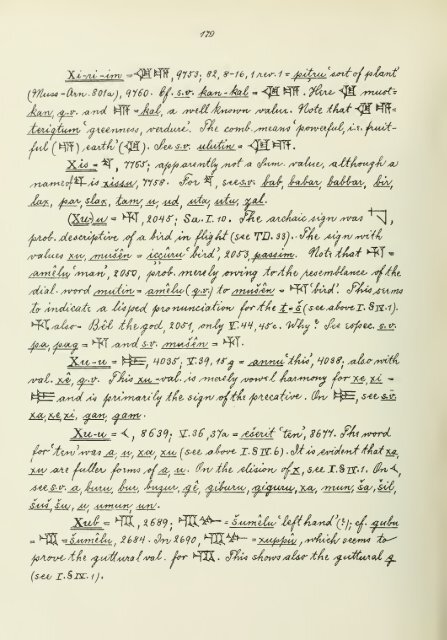 179
Xi-ri-im = 𒆠𒊑, 9753; 82, 8-16, 1 rev. 1 = pitru 'sort of plant'
(Muss-Arn. 801a), 9760. Cf. s.v. kan-kal = . Here must =
kan, q.v. and = kal, a well known value. Note that =
terigtum 'greenness, verdure'. The comb. means 'powerful, i.e. fruit-
ful ( ), earth' ( ). See s.v. ulutin = .
Xis = , 7755; apparently not a Sum. value, although a
name of is xissu, 7758. For , see s.v. bab, babar, babbar, bir,
lax, par, slax, tam, u, ud, uta, utu, zal.
(Xu)-u = , 2045; Sa. I. 10. The archaic sign was ,
prob. descriptive of a bird in flight (see TD. 33). The sign with
values xu, mušên = iççuru 'bird', 2053, passim. Note that =
amêlu 'man', 2050, prob. merely owing to the resemblance of the
dial. word mutin = amêlu (q.v.) to mušên = 'bird'. This seems
to indicate a lisped pronunciation for the t = š (see above I. § IV. 1).
also = Bêl the god, 2051, only V. 44, 45c. Why? See espec. s.v.
pa, pag = and s.v. mušên = .
Xu-u = , 4035; V. 39, 15 g = annu 'this', 4038; also with
val. xê, q.v. This xu-val. is merely vowel harmony for xe, xi =
and is primarily the sign of the precative. On , see s.v.
xa, xe, xi, gan, gam.
Xu-u = , 8639; V. 36, 37a = ešerit 'ten', 8677. The word
for 'ten' was a, u, xa, xu (see above I. § II. 6). It is evident that xa,
xu are fuller forms of a, u. On the elision of x, see I. § IV. 1. On ,
see s.v. a, buru, bur, buzur, gê, giburu, giguru, xa, mun, ša, šil,
šuš, šu, u, umun, un.
Xub = , 2689; = šumêlu 'left hand' (?); cf. gubu
= = šumêlu, 2684. In 2690, = xuppû, which seems to
prove the guttural val. for . This shows also the guttural g
(see I. § IX. 1).